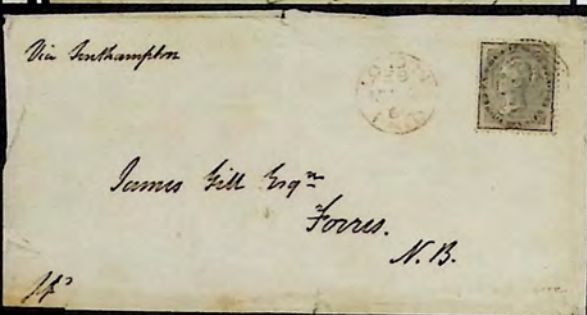 Via Southampton
James Gill Esqre
Forres.
N.B.